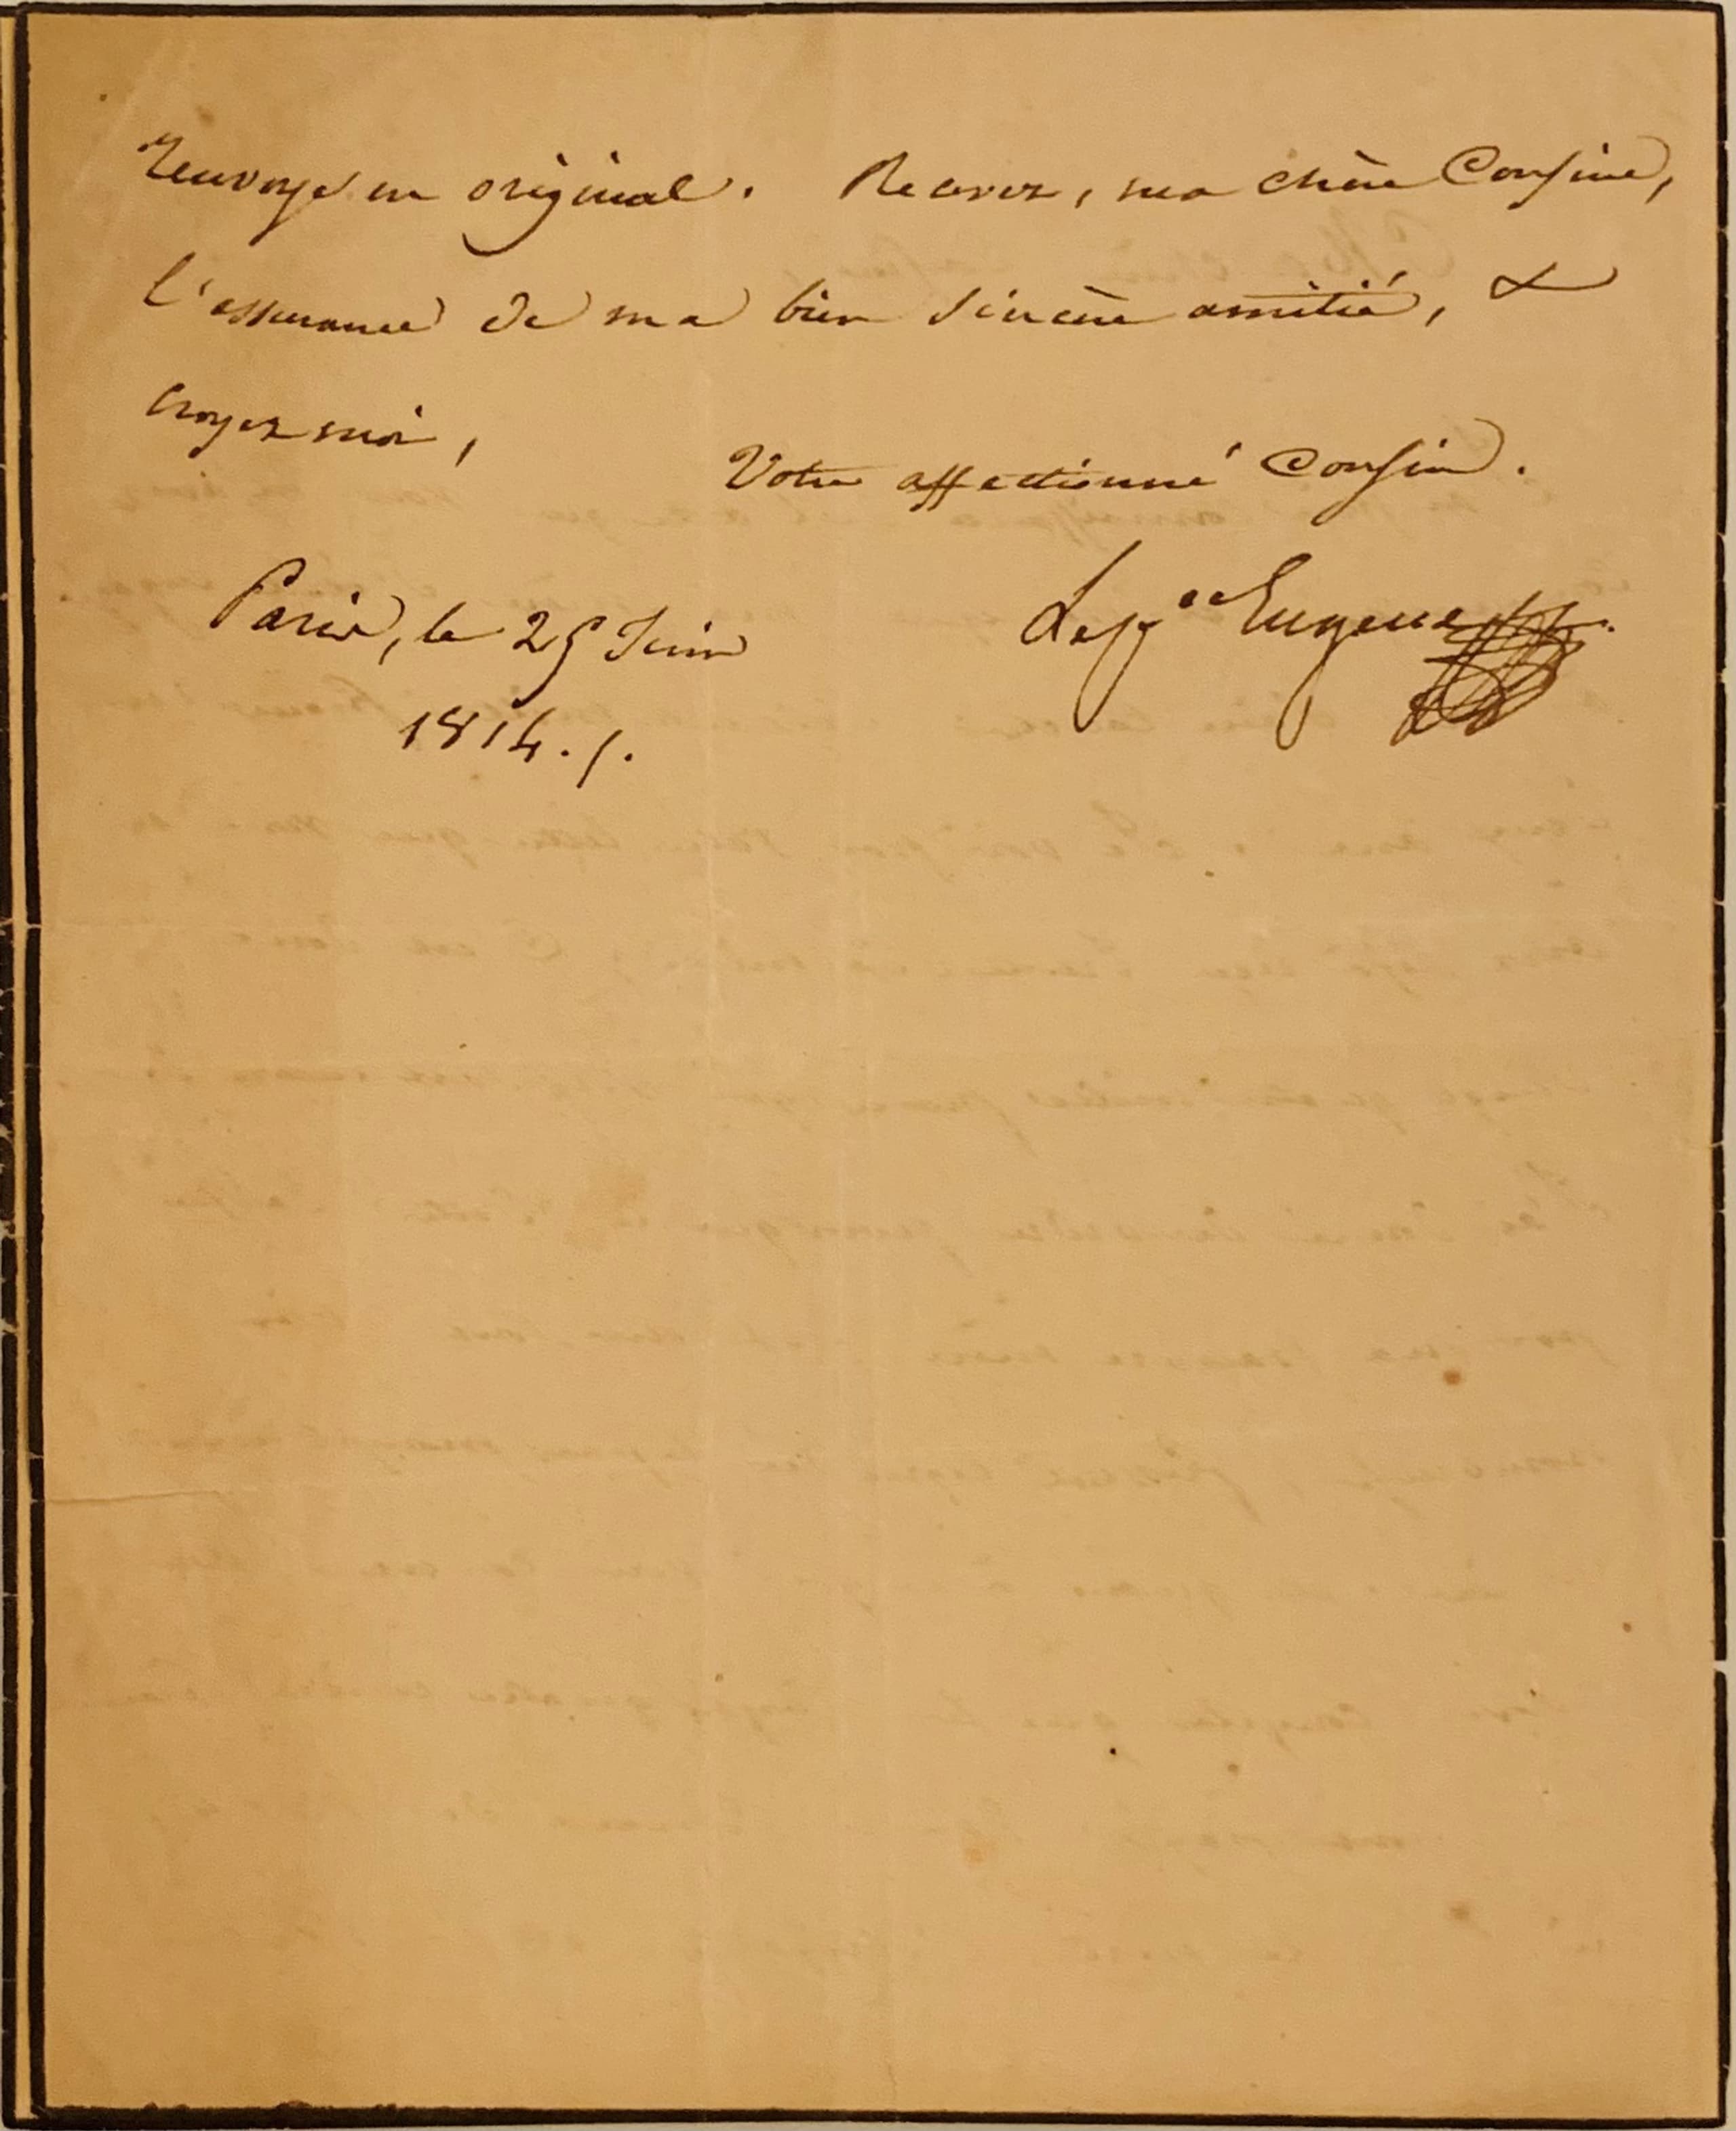 renvoye en original. Recevez, ma chère Cousine,
l'assurance de ma bien sincère amitié, &
croyez moi,
Votre affectionné Cousin.
Le pce Eugene
Paris, le 25 Juin
1814./.